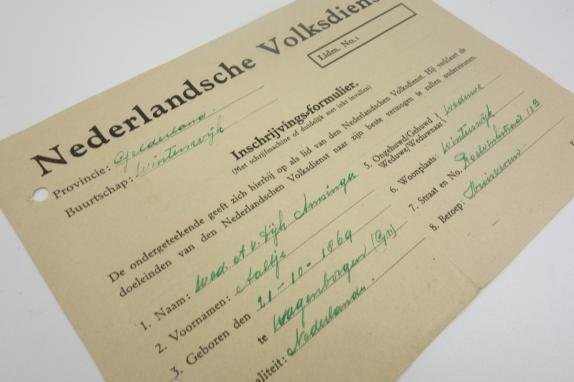 Nederlandsche Volksdiens
Lidm. No.:
Provincie: Gelderland.
Buurtschap: Winterswijk
Inschrijvings-formulier.
(Met schrijfmachine of duidelijk met inkt invullen)
De ondergeteekende geeft zich hierbij op als lid van den Nederlandschen Volksdienst. Hij verklaart de
doeleinden van den Nederlandschen Volksdienst naar zijn beste vermogen te zullen ondersteunen.
1. Naam: Wed. A v. Dijk
2. Voornamen: Aaltje
3. Geboren den 21-10-1869
te Wagenborgen (Gr.)
aliteit: Nederlandse
5. Ongehuwd/Gehuwd
Weduwe/Weduwnaar: Weduwe
6. Woonplaats: Winterswijk
7. Straat en No.
8. Beroep: Huisvrouw